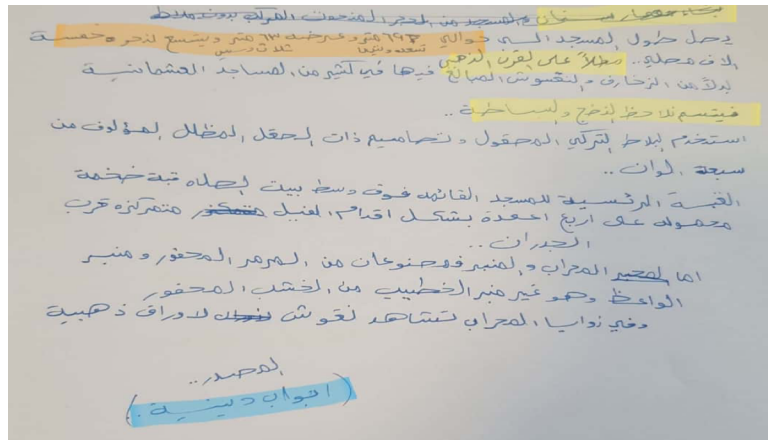 سنان والمسجد من الحجر المنحوت المركب بدون خليط
يصل طول المسجد الى حوالي ٦٩ متر وعرضه ٦٣ متر ويتسع لنحو خمسة
تسعه وستين ثلاث وستين
الاف مصلي .. مطلاً على القرن الذهبي
بدلاً من الزخارف والنقوش المبالغ فيها في كثير من المساجد العثمانية
فيتسم نلاحظ النضج والبساطة ..
استخدم البلاط التركي المصقول وتصاميم ذات الحقل المظلل المؤلف من
سبعة الوان ..
القبة الرئسية للمسجد القائمه فوق وسط بيت الصلاه قبة ضخمة
محموله على اربع اعمدة بشكل اقدام الفيل متمركزه قرب
الجدران ..
اما المحراب والمنبر فمصنوعان من المرمر المحفور ومنبر
الواعظ وهو غير منبر الخطيب من الخشب المحفور
وفي زوايا المحراب تشاهد نقوش لاوراق ذهبية
المصدر ..
(ابواب دينية ..)